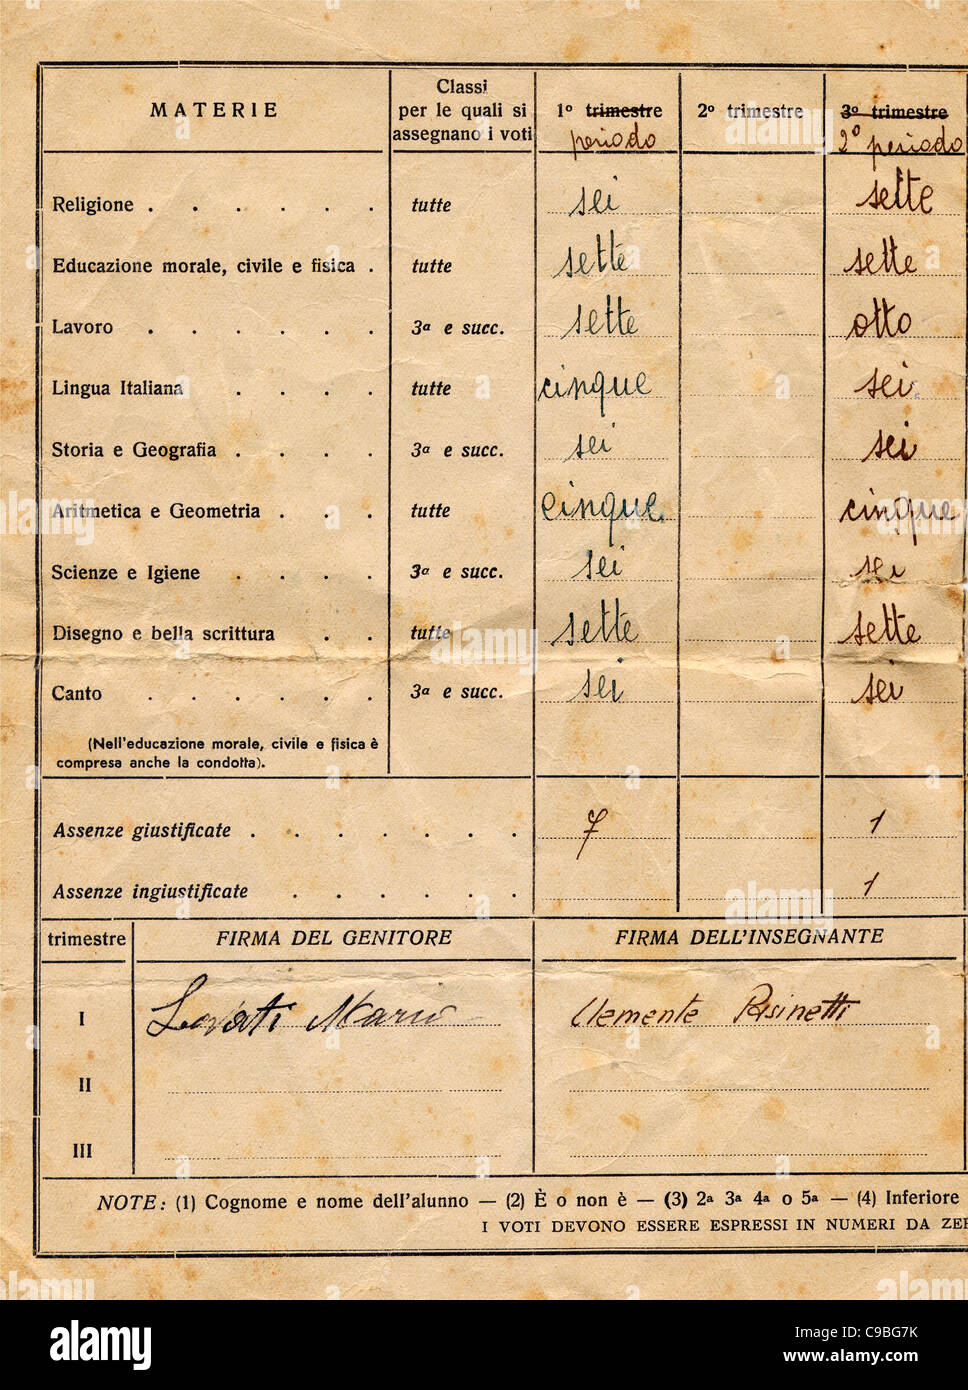 MATERIE Classi per le quali si assegnano i voti 1º trimestre periodo 2º trimestre 3º trimestre 2º periodo
Religione . . . . . . tutte sei sette
Educazione morale, civile e fisica . tutte sette sette
Lavoro . . . . . . 3ª e succ. sette otto
Lingua Italiana . . . . tutte cinque sei
Storia e Geografia . . . . 3ª e succ. sei sei
Aritmetica e Geometria . . . tutte cinque cinque
Scienze e Igiene . . . . 3ª e succ. sei sei
Disegno e bella scrittura . . tutte sette sette
Canto . . . . . . 3ª e succ. sei sei
(Nell'educazione morale, civile e fisica è
compresa anche la condotta).
Assenze giustificate . . . . . . . 7 1
Assenze ingiustificate . . . . . . 1
trimestre FIRMA DEL GENITORE FIRMA DELL'INSEGNANTE
I Lovati Mario Clemente Pisinetti
II
III
NOTE: (1) Cognome e nome dell'alunno — (2) È o non è — (3) 2ª 3ª 4ª o 5ª — (4) Inferiore
I VOTI DEVONO ESSERE ESPRESSI IN NUMERI DA ZER
alamy
Image ID: C9BG7K
www.alamy.com